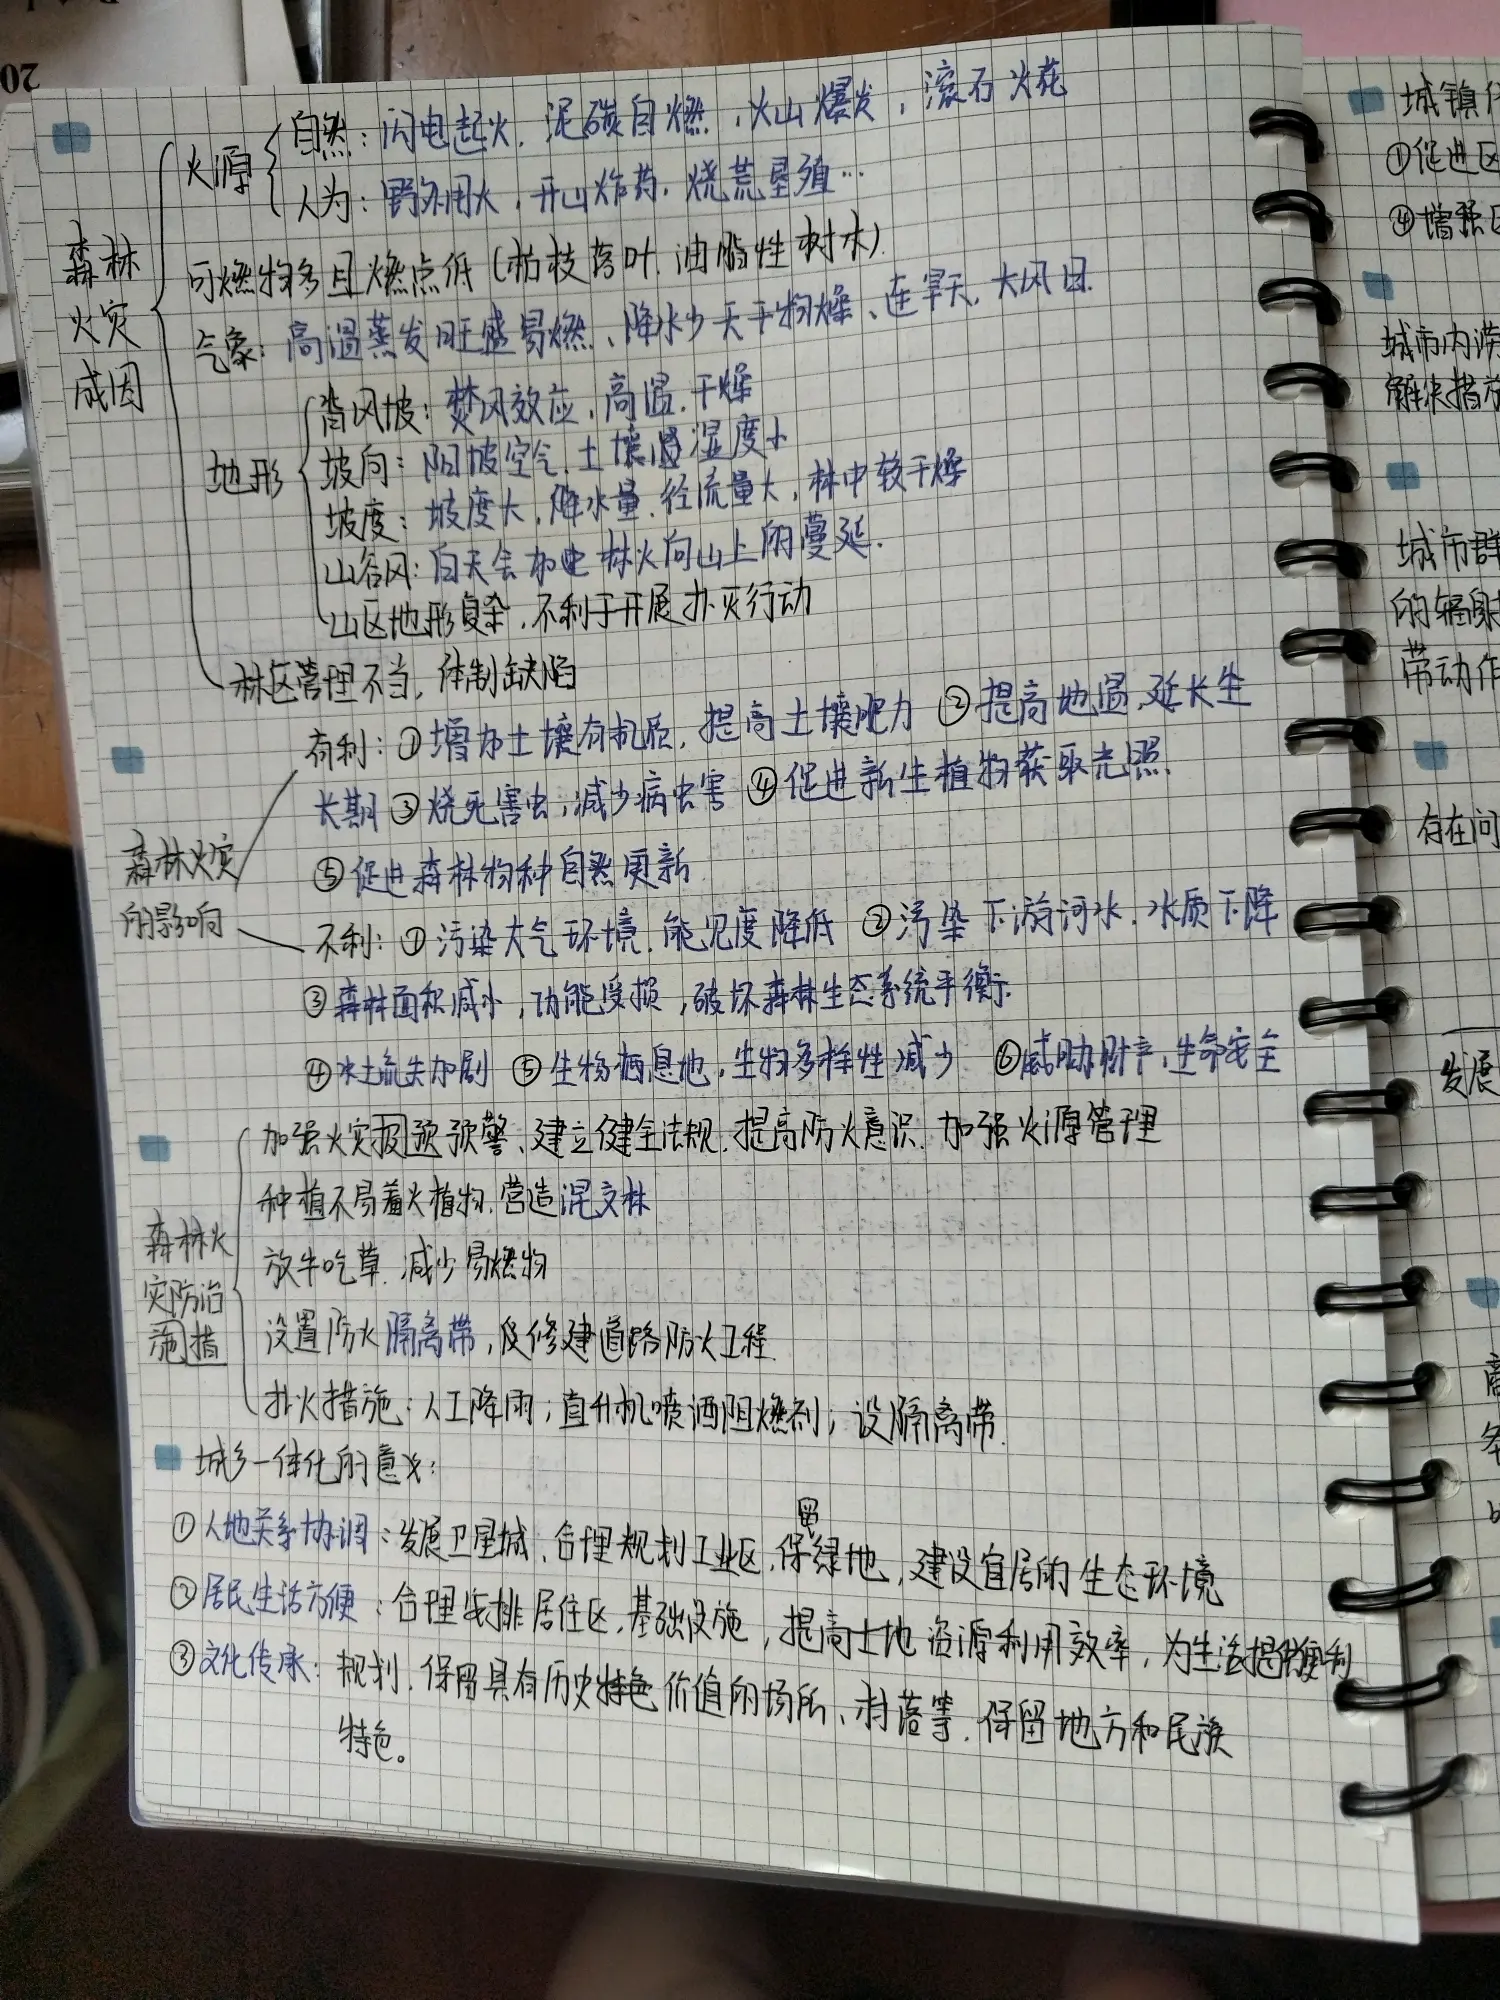 20
森林
火灾
成因
火源
自然：闪电起火，泥碳自燃，火山爆发，滚石火花
人为：野外用火，开山炸药，烧荒垦殖…
可燃物多且燃点低（枯枝落叶、油脂性树木）
气象：高温蒸发旺盛易燃、降水少天干物燥、连旱天，大风日.
地形
背风坡：焚风效应，高温，干燥
坡向：阳坡空气、土壤湿度小
坡度：坡度大，降水量，径流量大，林中较干燥
山谷风：白天会加速林火向山上的蔓延.
山区地形复杂，不利于开展扑灭行动
林区管理不当，体制缺陷
森林火灾
的影响
有利：①增加土壤有机质，提高土壤肥力 ②提高地温，延长生
长期 ③烧死害虫，减少病虫害 ④促进新生植物获取光照
⑤促进森林物种自然更新
不利：①污染大气环境，能见度降低 ②污染下游河水，水质下降
③森林面积减小，功能受损，破坏森林生态系统平衡.
④水土流失加剧 ⑤生物栖息地，生物多样性减少 ⑥威胁财产，生命安全
森林火
灾防治
施措
加强火灾报预预警、建立健全法规，提高防火意识，加强火源管理
种植不易着火植物，营造混交林
放牛吃草，减少易燃物
设置防火隔离带，及修建道路防火工程
扑火措施：人工降雨；直升机喷洒阻燃剂；设隔离带.
城乡一体化的意义：
①人地关系协调：发展卫星城、合理规划工业区，保留绿地，建设宜居的生态环境
②居民生活方便：合理安排居住区，基础设施，提高土地资源利用效率，为生活提供便利
③文化传承：规划，保留具有历史特色价值的场所、村落等，保留地方和民族
特色。
城镇
①促进区
④增强区
城市内涝
解决措施
城市群
的辐射
带动作
存在问
发展